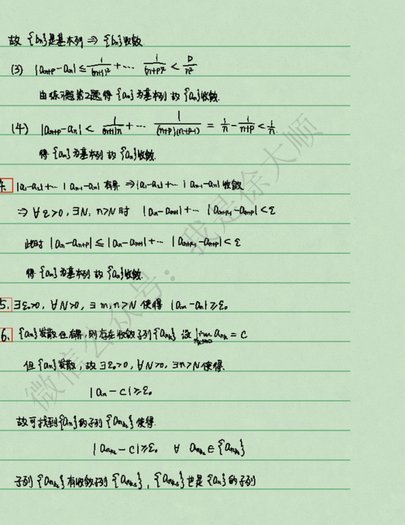 故 {bn}是基本列 ⇒ {bn}收敛
(3) |an+p-an| ≤ 1/(n+1)² + ⋯ 1/(n+p)² < p/n²
由练习题第2题得 {an}为基本列 故 {an}收敛.
(4) |an+p-an| < 1/(n+1)n + ⋯ 1/(n+p)(n+p-1) = 1/n - 1/n+p < 1/n
得 {an}为基本列 故 {an}收敛.
4. |a1-a2|+⋯ |an-1-an| 有界 ⇒ |a1-a2|+⋯ |an-1-an| 收敛
⇒ ∀ε>0, ∃N, n>N 时 |an-an+1|+⋯ |an+p-1-an+p|<ε
此时 |an-an+p| ≤ |an-an+1|+⋯ |an+p-1-an+p|<ε
得 {an}为基本列 故 {an}收敛.
5. ∃ε0>0, ∀N>0, ∃ m,n>N 使得 |am-an|≥ε0
6. {an}发散但有界, 则存在收敛子列{ank} 设 lim ank = C
但 {an}发散, 故 ∃ε0>0, ∀N>0, ∃n>N 使得
|an-C|≥ε0
故可找到{an}的子列 {amk} 使得
|amk-C|≥ε0 ∀ amk∈{amk}
子列 {amk}有收敛子列 {amks}, {amks}也是 {an}的子列
微信公众号：我是徐大顺